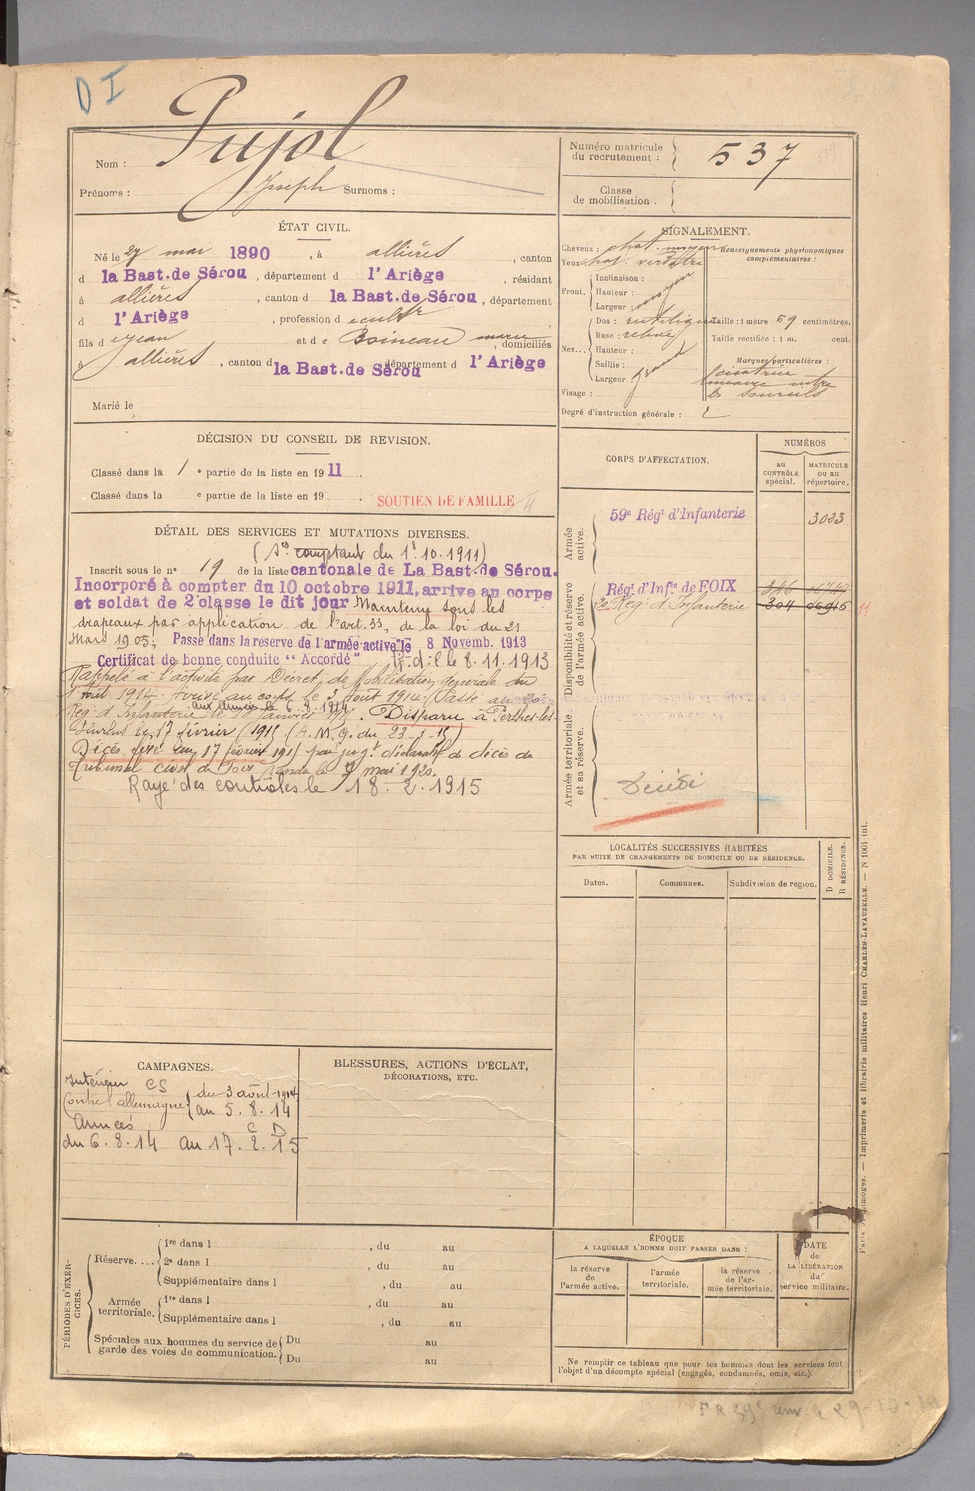 D I
Nom : Pujol
Prénoms : Joseph Surnoms :
Numéro matricule
du recrutement : 537
Classe
de mobilisation .
ÉTAT CIVIL.
Né le 27 mai 1890 , à allières , canton
d la Bast.de Sérou , département d l'Ariège , résidant
à allières , canton d la Bast.de Sérou , département
d l'Ariège , profession d cultr
fils d jean et de Boineau marie , domiciliés
à allières , canton d la Bast.de Sérou département d l'Ariège
Marié le
SIGNALEMENT.
Cheveux : chat. moyen
Yeux verdâtre
Front. Inclinaison :
Hauteur : moyen
Largeur :
Nez... Dos : rectiligne
Base : relevé
Hauteur :
Saillie :
Largeur
Visage :
Renseignements physionomiques
complémentaires :
Taille : 1 mètre 59 centimètres.
Taille rectifiée : 1 m. cent.
Marques particulières :
cicatrice
linéaire entre
les sourcils
Degré d'instruction générale : 2
DÉCISION DU CONSEIL DE REVISION.
Classé dans la 1 e partie de la liste en 1911 .
Classé dans la e partie de la liste en 19 .
SOUTIEN DE FAMILLE
DÉTAIL DES SERVICES ET MUTATIONS DIVERSES.
(Ses comptant du 1r.10.1911)
Inscrit sous le no 19 de la liste cantonale de La Bast.de Sérou.
Incorporé à compter du 10 octobre 1911, arrivé au corps
et soldat de 2e classe le dit jour Maintenu sous les
drapeaux par application de l'art. 33, de la loi du 21
Mars 1905; Passé dans la réserve de l'armée active le 8 Novemb. 1913
Certificat de bonne conduite "Accordé" le 8.11.1913
Rappelé à l'activité par Décret de Mobilisation générale du
1er Août 1914. Arrivé au corps le 3 Août 1914. Passé au 20e
aux Armées le 6.8.1914
Rég. d'Infanterie le janvier Disparu à Perthes-les-
Hurlus le 17 février 1915 (A.M.G. du )
Décès fixé au 17 février 1915 par jugt déclaratif de décès du
Tribunal civil de Foix rendu le 7 mai 1920.
Rayé des contrôles le 18.2.1915
CORPS D'AFFECTATION.
NUMÉROS
au
CONTRÔLE
spécial.
MATRICULE
ou au
répertoire.
Armée
active.
59e Régt d'Infanterie 3033
Disponibilité et réserve
de l'armée active.
Régt. d'Infie de FOIX
20e Rég. d'Infanterie
11
Armée territoriale
et sa réserve.
Décédé
LOCALITÉS SUCCESSIVES HABITÉES
PAR SUITE DE CHANGEMENTS DE DOMICILE OU DE RÉSIDENCE.
Dates. Communes. Subdivision de région.
D DOMICILE.
R RÉSIDENCE.
CAMPAGNES.
Intérieur CS
Contre allemagne du 3 août 1914
au 5.8.14
Armées C D
du 6.8.14 au 17.2.15
BLESSURES, ACTIONS D'ÉCLAT,
DÉCORATIONS, ETC.
PÉRIODES D'EXER-
CICES.
Réserve.... 1re dans l , du au
2e dans l , du au
Supplémentaire dans l , du au
Armée
territoriale. 1re dans l , du au
Supplémentaire dans l , du au
Spéciales aux hommes du service de
garde des voies de communication. Du au
Du au
ÉPOQUE
A LAQUELLE L'HOMME DOIT PASSER DANS :
la réserve
de
l'armée active.
l'armée
territoriale.
la réserve
de l'ar-
mée territoriale.
DATE
de
LA LIBÉRATION
du
service militaire.
Ne remplir ce tableau que pour les hommes dont les services font
l'objet d'un décompte spécial (engagés, condamnés, omis, etc.).
Imprimerie et librairie militaires Henri CHARLES-LAVAUZELLE. — N° 1001 int.